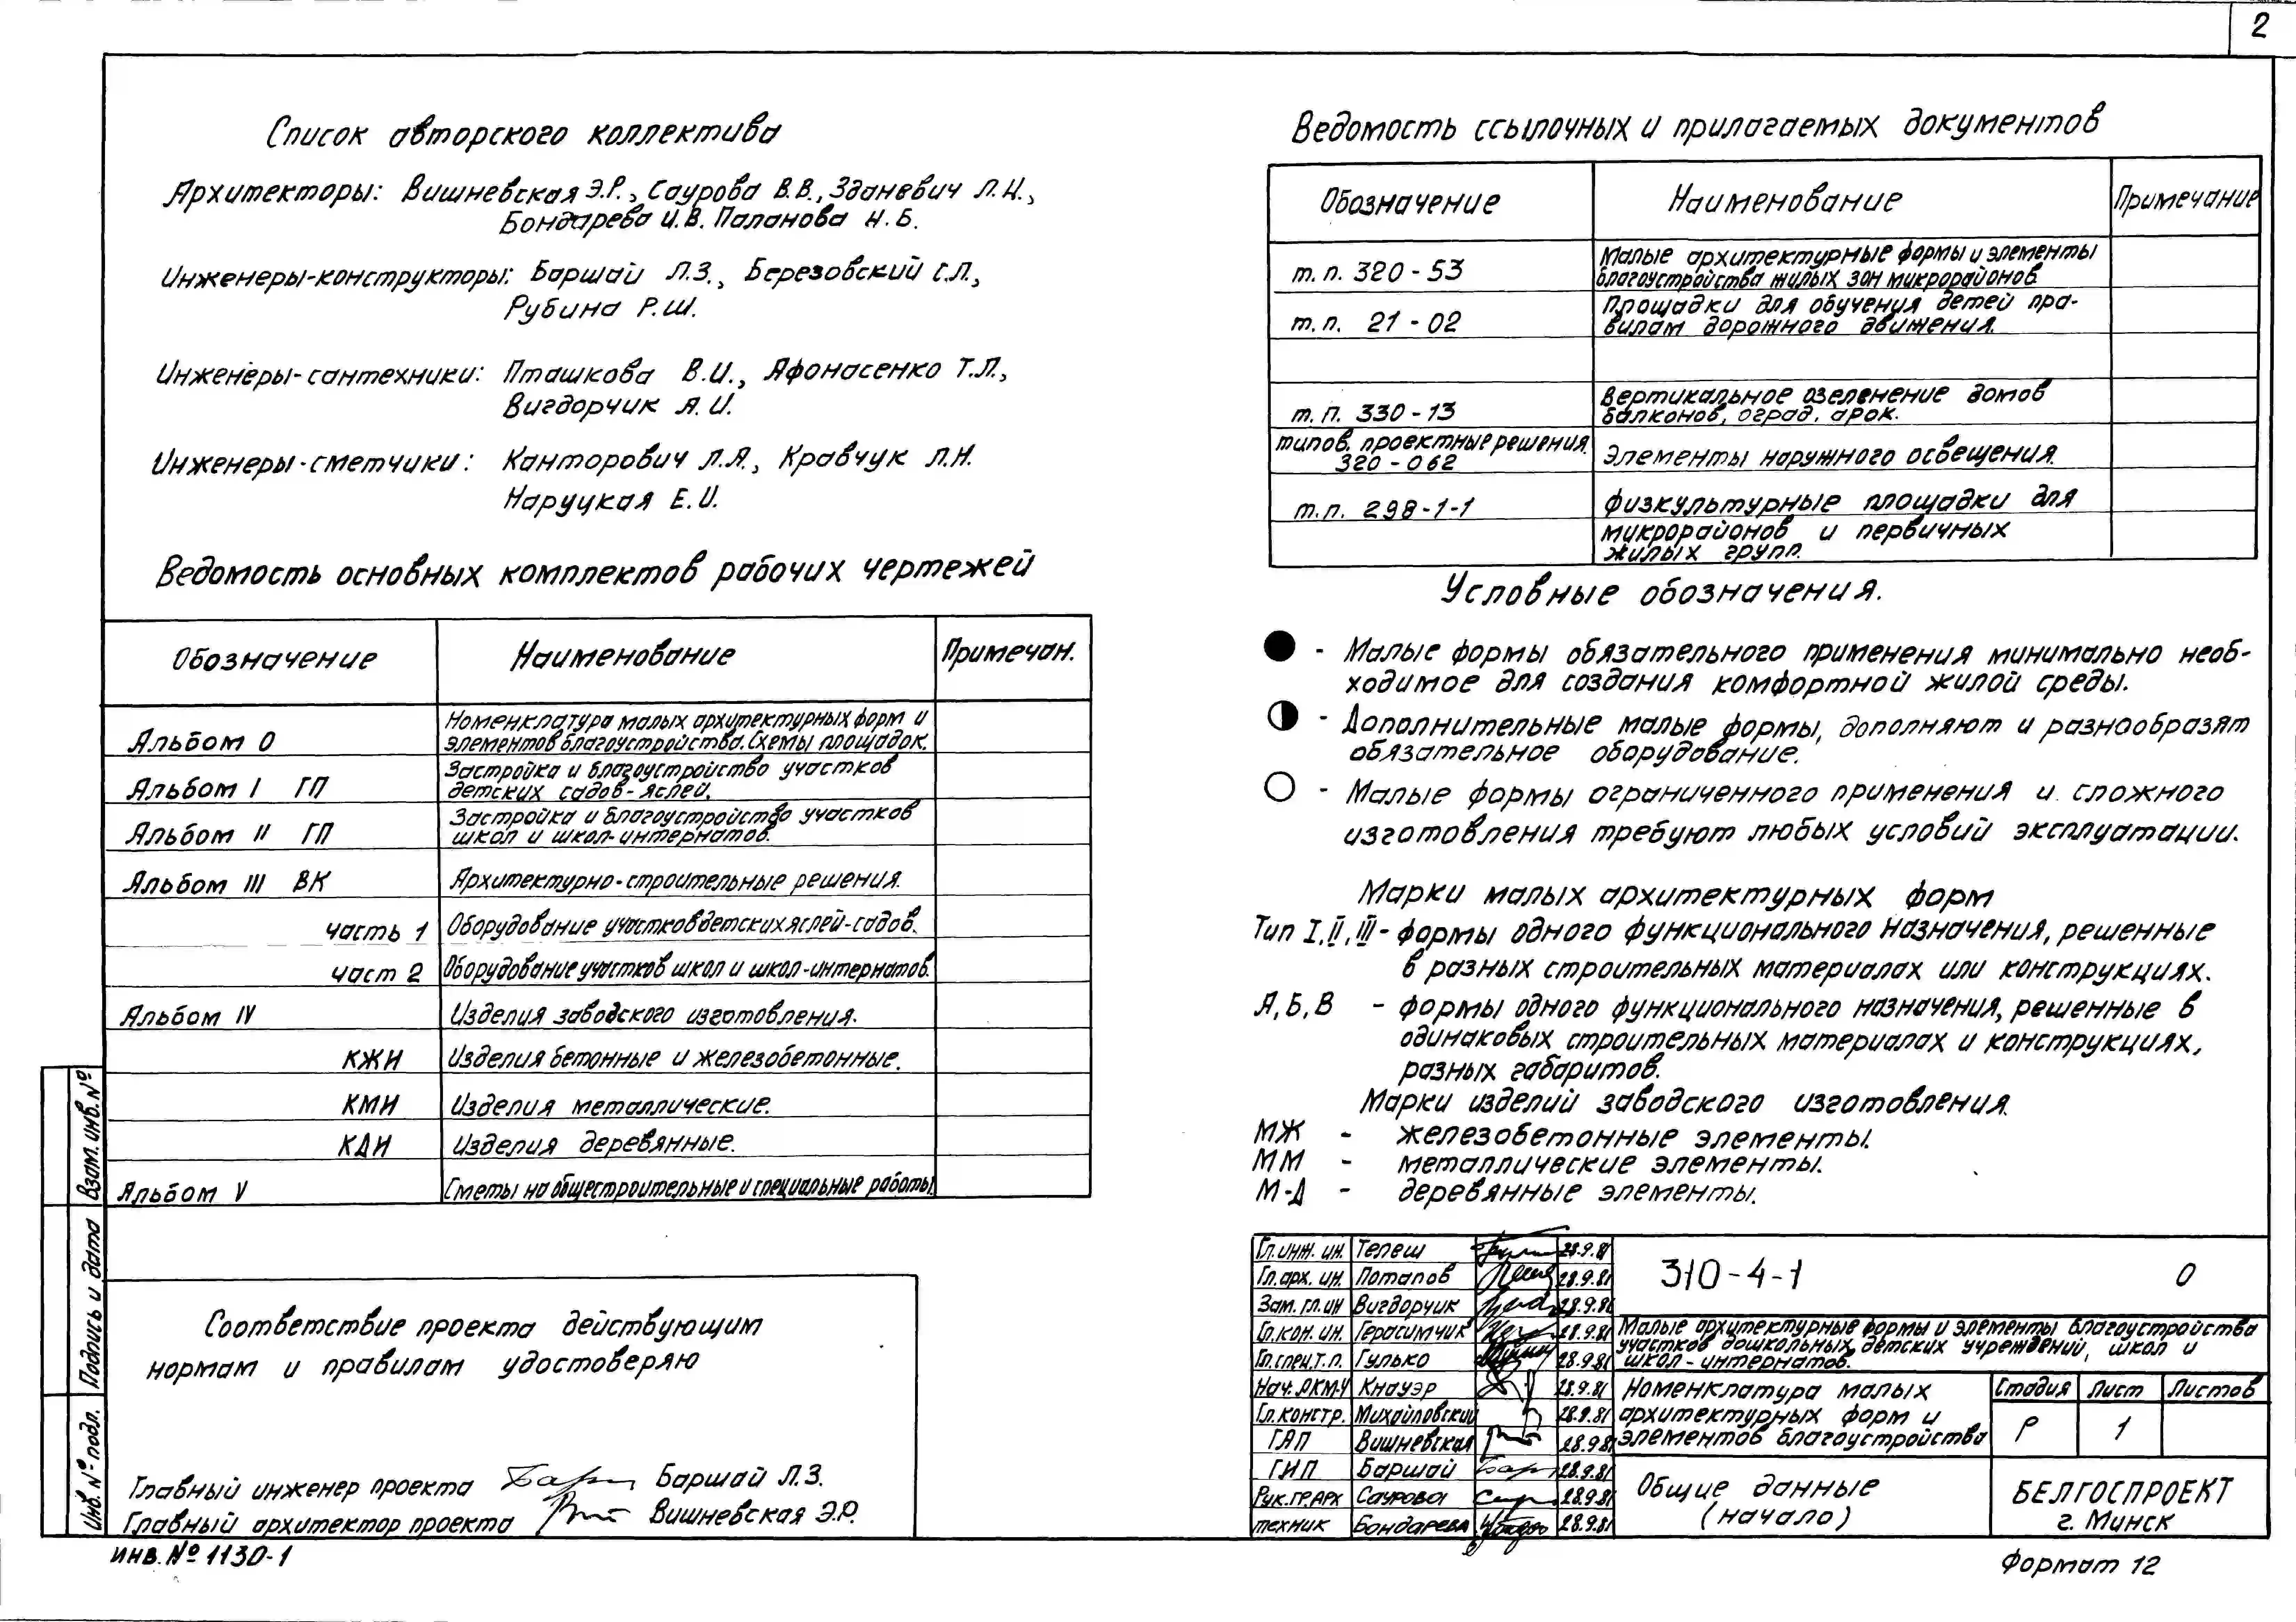 2
Список авторского коллектива
Архитекторы: Вишневская Э.Р., Саурова В.В., Зданевич Л.Н.,
Бондарева И.В. Паланова Н.Б.
Инженеры-конструкторы: Баршай Л.З., Березовский Г.Л.,
Рубина Р.Ш.
Инженеры-сантехники: Пташкова В.И., Афонасенко Т.Л.,
Вигдорчик А.И.
Инженеры-сметчики: Канторович Л.Я., Кравчук Л.Н.
Наруцкая Е.И.
Ведомость основных комплектов рабочих чертежей
Обозначение Наименование Примечан.
Альбом 0 Номенклатура малых архитектурных форм и
элементов благоустройства. Схемы площадок.
Альбом I ГП Застройка и благоустройство участков
детских садов-яслей.
Альбом II ГП Застройка и благоустройство участков
школ и школ-интернатов.
Альбом III ВК Архитектурно-строительные решения.
часть 1 Оборудование участков детских яслей-садов.
част 2 Оборудование участков школ и школ-интернатов.
Альбом IV Изделия заводского изготовления.
КЖИ Изделия бетонные и железобетонные.
КМИ Изделия металлические.
КДИ Изделия деревянные.
Альбом V Сметы на общестроительные и специальные работы.
Соответствие проекта действующим
нормам и правилам удостоверяю
Главный инженер проекта Баршай Л.З.
Главный архитектор проекта Вишневская Э.Р.
Взам. инв. №
Подпись и дата
Инв. № подл.
инв. № 1130-1
Ведомость ссылочных и прилагаемых документов
Обозначение Наименование Примечание
т.п. 320-53 Малые архитектурные формы и элементы
благоустройства жилых зон микрорайонов
т.п. 21-02 Площадки для обучения детей пра-
вилам дорожного движения.
т.п. 330-13 Вертикальное озеленение домов
балконов, оград, арок.
типов. проектные решения
320-062 Элементы наружного освещения.
т.п. 298-1-1 физкультурные площадки для
микрорайонов и первичных
жилых групп.
Условные обозначения.
- Малые формы обязательного применения минимально необ-
ходимое для создания комфортной жилой среды.
- Дополнительные малые формы, дополняют и разнообразят
обязательное оборудование.
- Малые формы ограниченного применения и сложного
изготовления требуют любых условий эксплуатации.
Марки малых архитектурных форм
Тип I, II, III - формы одного функционального назначения, решенные
в разных строительных материалах или конструкциях.
А, Б, В - формы одного функционального назначения, решенные в
одинаковых строительных материалах и конструкциях,
разных габаритов.
Марки изделий заводского изготовления.
МЖ - железобетонные элементы.
ММ - металлические элементы.
М-Д - деревянные элементы.
Гл. инж. ин. Телеш 28.9.81
Гл. арх. ин. Потапов 28.9.81
Зам. гл. ин Вигдорчик 28.9.81
Гл. кон. ин. Герасимчик 28.9.81
Гл. спец. т.п. Гулько 28.9.81
Нач. АКМ-4 Кнауэр 28.9.81
Гл. констр. Михайловский 28.9.81
ГАП Вишневская 28.9.81
ГИП Баршай 28.9.81
Рук. гр. арх Саурова 28.9.81
техник Бондарева 28.9.81
310-4-1 0
Малые архитектурные формы и элементы благоустройства
участков дошкольных детских учреждений, школ и
школ-интернатов.
Номенклатура малых
архитектурных форм и
элементов благоустройства
Стадия Лист Листов
Р 1
Общие данные
(начало)
БЕЛГОСПРОЕКТ
г. Минск
Формат 12